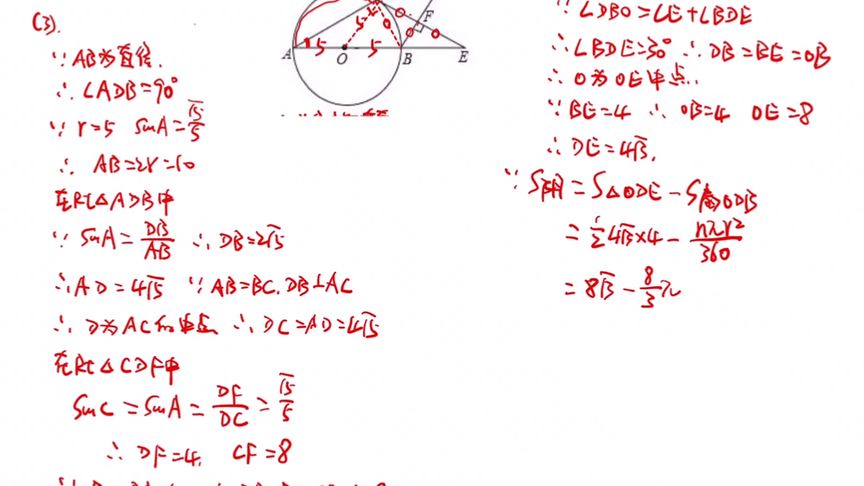 (3).
∵ AB为直径.
∴ ∠ADB=90°
∵ r=5 sinA=√5/5
∴ AB=2r=10
在Rt△ADB中
∵ sinA=DB/AB ∴ DB=2√5
∴AD=4√5 ∵ AB=BC. DB⊥AC
∴ D为AC的中点 ∴ DC=AD=4√5
在Rt△CDF中
sinC=sinA=DF/DC=√5/5
∴ DF=4. CF=8
5
F
A 5 O 5 B E
∵ ∠DBO=∠E+∠BDE
∴∠BDE=30° ∴ DB=BE=OB
∴ O为OE中点.
∵ BE=4 ∴ OB=4 OE=8
∴ DE=4√3.
∵ S阴=S△ODE-S扇ODB
=1/2 4√3×4-nπr²/360
=8√3-8/3π